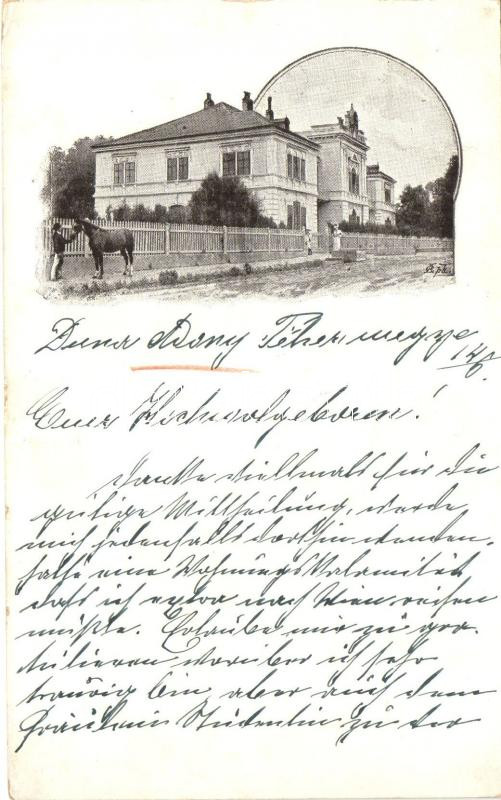 Duna Adony Fehérmegye
14/6
Euer Hochwolgeboren!
danke vielmals für die
gütige Mittheilung, werde
mich jedenfalls dorthin wenden,
habe eine Wohnungskalamität
dass ich extra nach Wien reisen
müßte. Erlaube mir zu gra-
tulieren, worüber ich sehr
traurig bin, aber auch dem
Fräulein Studentin zu der